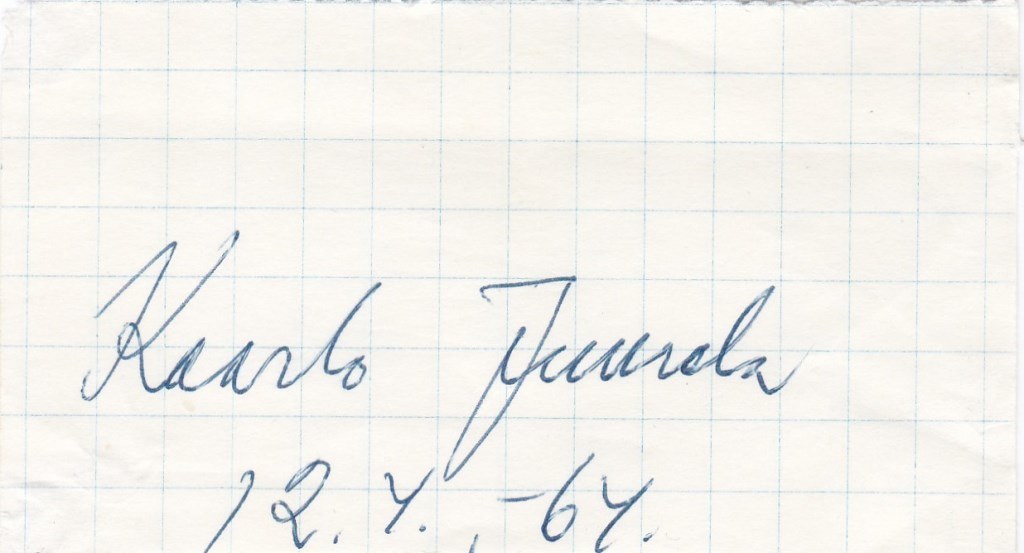 Kaarlo Juurela
12.4.-64.